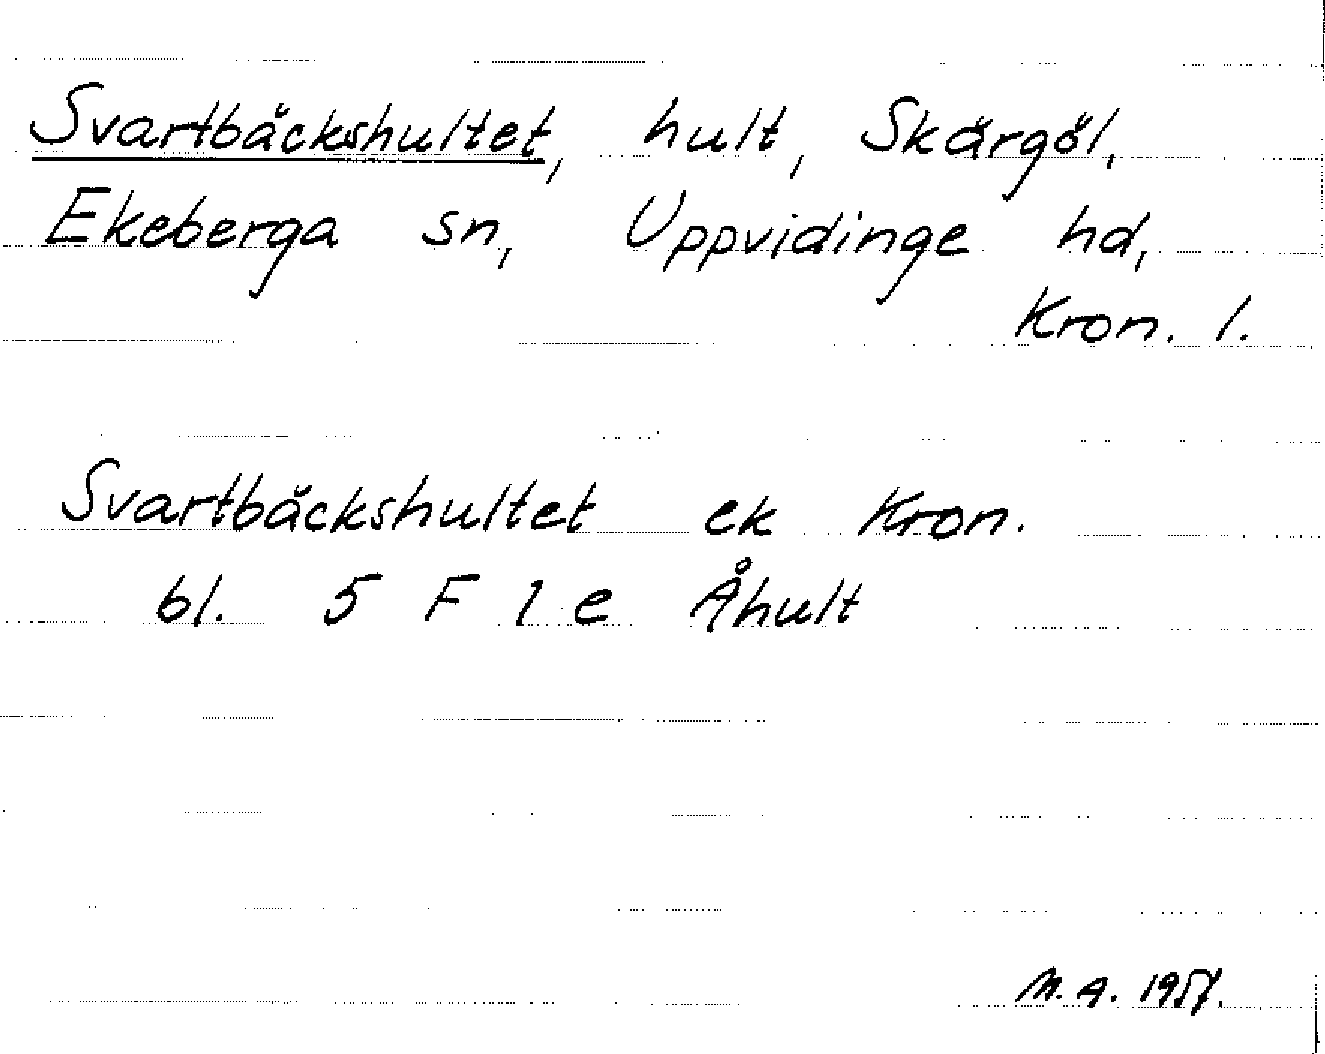 Svartbäckshultet, hult, Skärgöl,
Ekeberga sn, Uppvidinge hd,
Kron. l.
Svartbäckshultet ek Kron.
bl. 5 F 1 e Åhult
M. A. 1957.